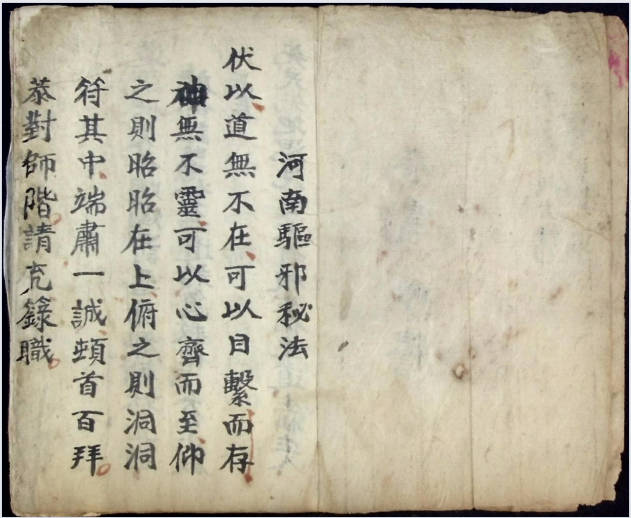 河南驅邪秘法
伏以道無不在可以目繫而存
神無不靈可以心齊而至仰
之則昭昭在上俯之則洞洞
符其中端肅一誠頓首百拜
恭對師階請充籙職